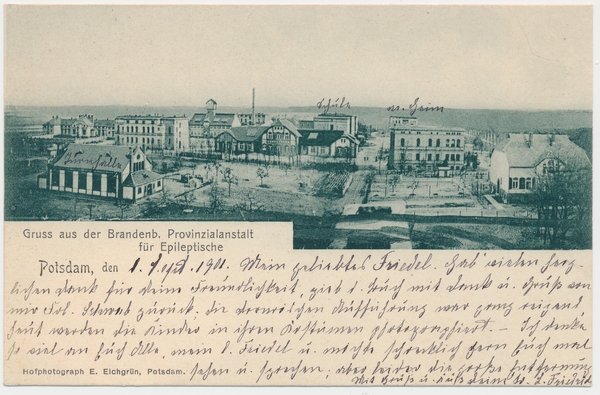 Schule
m. Heim
Turnhalle
Gruss aus der Brandenb. Provinzialanstalt
für Epileptische
Potsdam, den 1. Sept. 1901. Mein geliebtes Friedel. Hab' vielen herz-
lichen Dank für deine Freundlichkeit, gieb d. Buch mit Dank u. Gruß von
mir Frl. Schmidt zurück. Die Aufführung war ganz reizend
heut werden die Kinder in ihren Kostümen photographiert. – Ich denke
so viel an Euch Alle, mein l. Friedel u. möchte schrecklich gern Euch mal
Hofphotograph E. Eichgrün, Potsdam. sehen u. sprechen, aber leider die große Entfernung
Mit Gruß u. Kuß deine